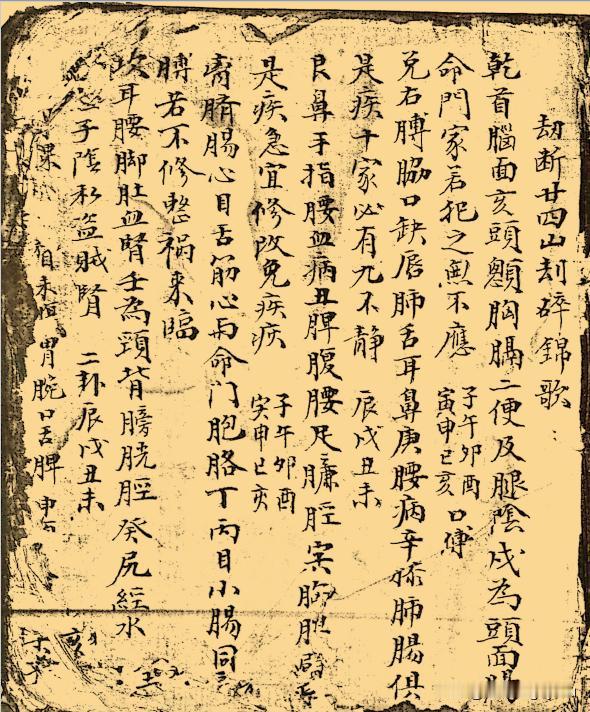 劫断廿四山刦碎錦歌
乾首腦面亥頭顫胸膈二便及腿陰戌為頭面腸
命門家若犯之無不應 子午卯酉 寅申巳亥 口縛
兑右膊脇口缺唇肺舌耳鼻庚腰病辛膝肺腸俱
是疾十家必有九不静 辰戌丑未
艮鼻手指腰血病丑脾腹腰足臁脛寅胸胆
是疾急宜修改免疾疾 子午卯酉 寅申巳亥
脐腸心目舌筋心丙命门胞胳丁丙目小腸同
膊若不修整禍来臨
坎耳腰脚肚血腎壬為頸背膀胱脛癸尻經水
子陰私盗贼腎 二卦辰戌丑未
胃腕口舌脾
亥